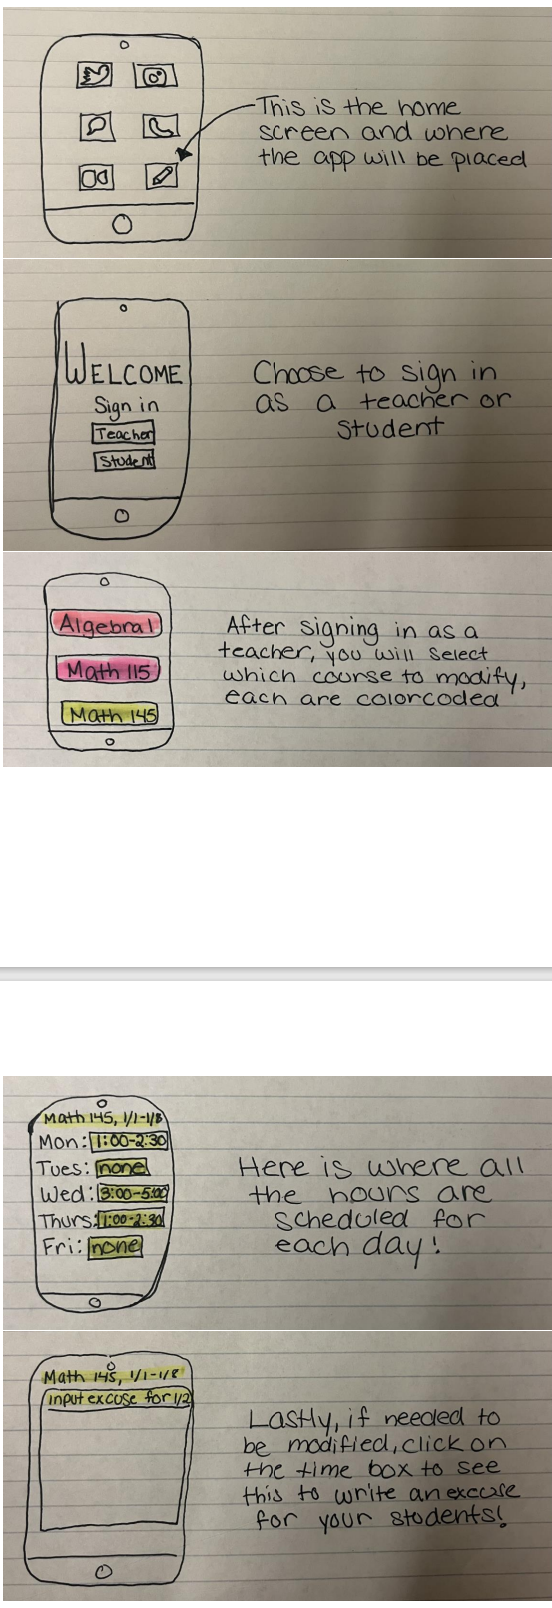 This is the home
screen and where
the app will be placed
WELCOME
Sign in
Teacher
Student
Choose to sign in
as a teacher or
student
Algebra 1
Math 115
Math 145
After signing in as a
teacher, you will select
which course to modify,
each are colorcoded
Math 145, 1/1-1/8
Mon: 1:00-2:30
Tues: none
Wed: 3:00-5:00
Thurs: 1:00-2:30
Fri: none
Here is where all
the hours are
scheduled for
each day!
Math 145, 1/1-1/8
input excuse for 1/2
Lastly, if needed to
be modified, click on
the time box to see
this to write an excuse
for your students!